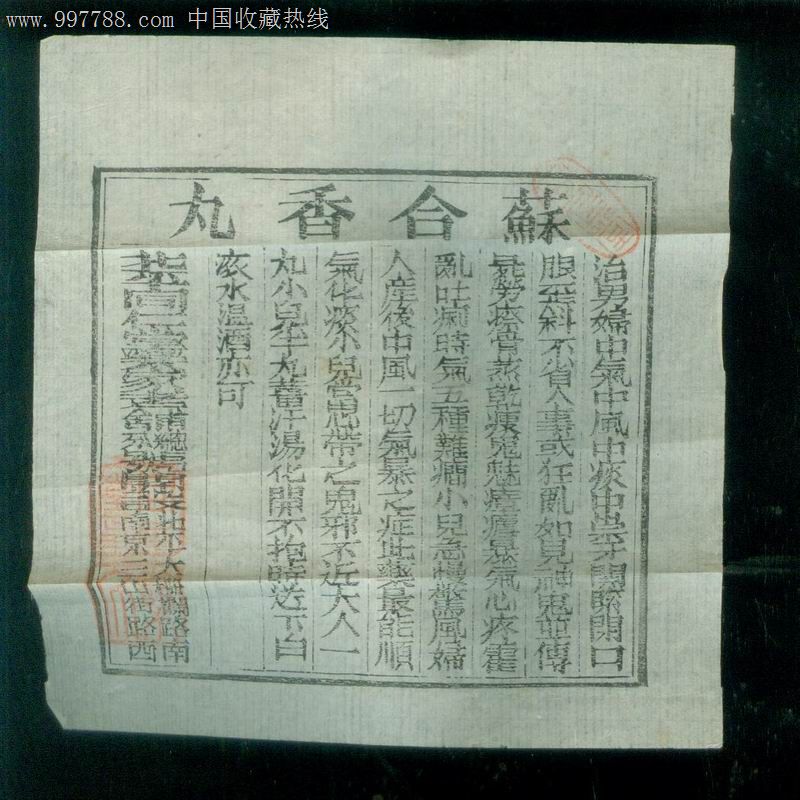 www.997788.com 中国收藏热线
蘇合香丸
治男婦中氣中風中痰中祟牙關緊閉口
眼歪斜不省人事或狂亂如見神鬼並傳
屍勞瘵骨蒸乾瘦鬼魅瘧瘴暴氣心疼霍
亂吐痢時氣五種難癎小兒急慢驚風婦
人産後中風一切氣暴之症此藥最能順
氣化痰小兒常思帶之鬼邪不近大人一
丸小兒半丸薑汁湯化開不拘時送下白
滾水温酒亦可
南京三山街路西
路南